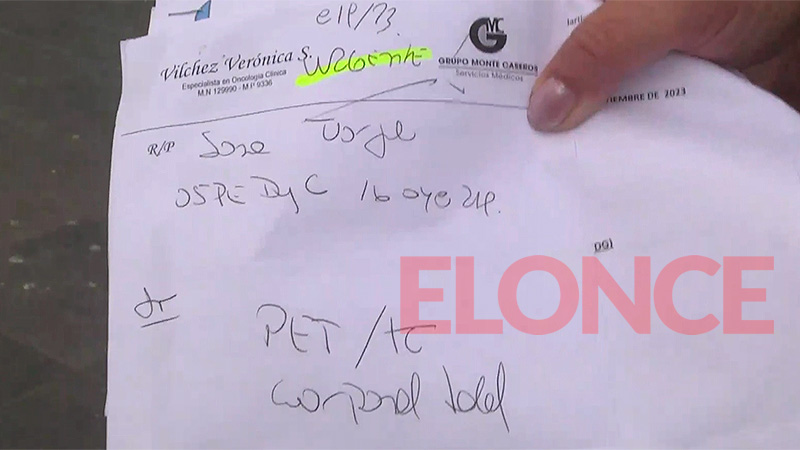 Vilchez Verónica S.
Especialista en Oncología Clínica
M.N 129990 - M.P 9336
URGENTE
GMC
GRUPO MONTE CASEROS
Servicios Médicos
TIEMBRE DE 2023
R/P Sosa Jorge
OSPEDyC
dr
PET/TC
corporal total
ELONCE